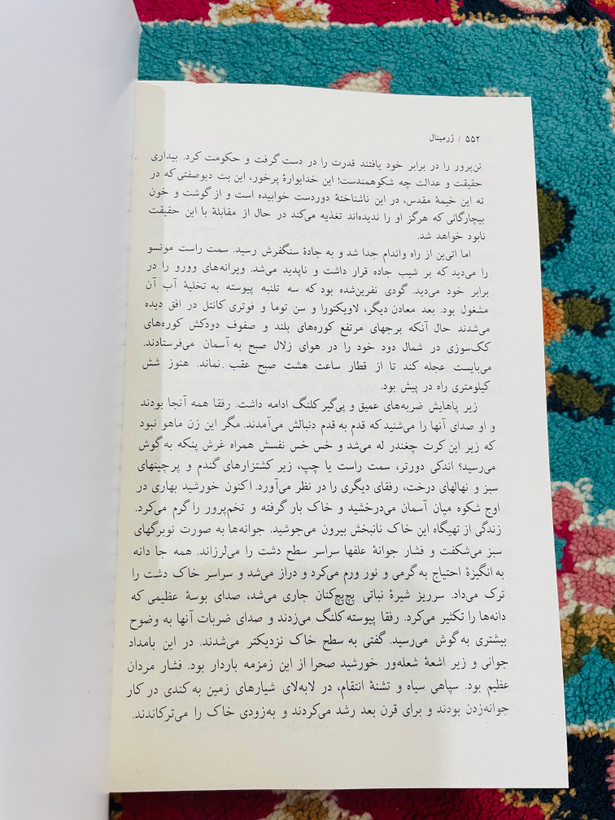 ۵۵۲ / ژرمینال
تن‌پرور را در برابر خود یافتند قدرت را در دست گرفت و حکومت کرد. بیداری
حقیقت و عدالت چه شکوهمندست! این خدایوارهٔ پرخور، این بت دیوصفتی که در
ته این خیمهٔ مقدس، در این ناشناختهٔ دوردست خوابیده است و از گوشت و خون
بیچارگانی که هرگز او را ندیده‌اند تغذیه می‌کند در حال از مقابلهٔ با این حقیقت
نابود خواهد شد.
اما اتی‌ین از راه واندام جدا شد و به جادهٔ سنگفرش رسید. سمت راست مونسو
را می‌دید که بر شیب جاده قرار داشت و ناپدید می‌شد. ویرانه‌های وورو را در
برابر خود می‌دید. گودی نفرین‌شده بود که سه تلنبه پیوسته به تخلیهٔ آب آن
مشغول بود. بعد معادن دیگر، لاویکتوار و سن توما و فوتری کانتل در افق دیده
می‌شدند حال آنکه برجهای مرتفع کوره‌های بلند و صفوف دودکش کوره‌های
کک‌سوزی در شمال دود خود را در هوای زلال صبح به آسمان می‌فرستادند.
می‌بایست عجله کند تا از قطار ساعت هشت صبح عقب نماند. هنوز شش
کیلومتری راه در پیش بود.
زیر پاهایش ضربه‌های عمیق و پی‌گیر کلنگ ادامه داشت. رفقا همه آنجا بودند
و او صدای آنها را می‌شنید که قدم به قدم دنبالش می‌آمدند. مگر این زن ماهو نبود
که زیر این کرت چغندر له می‌شد و خس خس نفسش همراه غرش پنکه به گوش
می‌رسید؟ اندکی دورتر، سمت راست یا چپ، زیر کشتزارهای گندم و پرچینهای
سبز و نهالهای درخت، رفقای دیگری را در نظر می‌آورد. اکنون خورشید بهاری در
اوج شکوه میان آسمان می‌درخشید و خاک بار گرفته و تخم‌پرور را گرم می‌کرد.
زندگی از تهیگاه این خاک نانبخش بیرون می‌جوشید. جوانه‌ها به صورت نوبرگهای
سبز می‌شکفت و فشار جوانهٔ علفها سراسر سطح دشت را می‌لرزاند. همه جا دانه
به انگیزهٔ احتیاج به گرمی و نور ورم می‌کرد و دراز می‌شد و سراسر خاک دشت را
ترک می‌داد. سرریز شیرهٔ نباتی پچ‌پچ‌کنان جاری می‌شد، صدای بوسهٔ عظیمی که
دانه‌ها را تکثیر می‌کرد. رفقا پیوسته کلنگ می‌زدند و صدای ضربات آنها به وضوح
بیشتری به گوش می‌رسید. گفتی به سطح خاک نزدیکتر می‌شدند. در این بامداد
جوانی و زیر اشعهٔ شعله‌ور خورشید صحرا از این زمزمه باردار بود. فشار مردان
عظیم بود. سپاهی سیاه و تشنهٔ انتقام، در لابه‌لای شیارهای زمین به کندی در کار
جوانه‌زدن بودند و برای قرن بعد رشد می‌کردند و به‌زودی خاک را می‌ترکاندند.